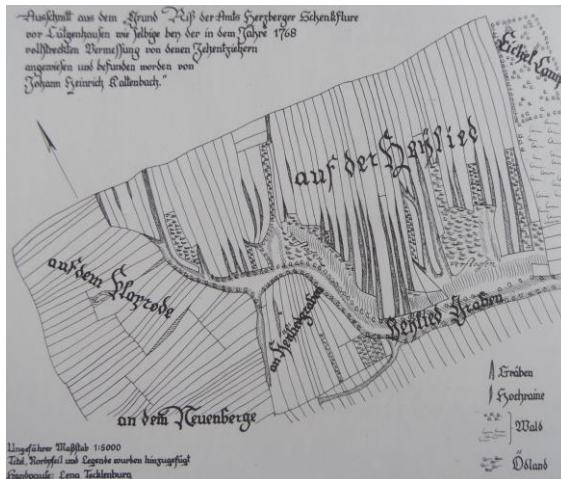 „Ausschnitt aus dem Grund Riß der Amts Herzberger Schenkflure
vor Lütgenhausen wie selbige bey der in dem Jahre 1768
vollstreckten Vermessung von denen Zehentziehern
angewiesen und befunden worden von
Johann Heinrich Kaltenbach.“
Eichel Camp
auf der Heylied
auf dem
an Heyliedgraben
Heylied Graben
an dem Neuenberge
Gräben
Hochraine
Wald
Ödland
Ungefährer Maßstab 1:5000
Titel, Nordpfeil und Legende wurden hinzugefügt
Handpause: Lena Tecklenburg